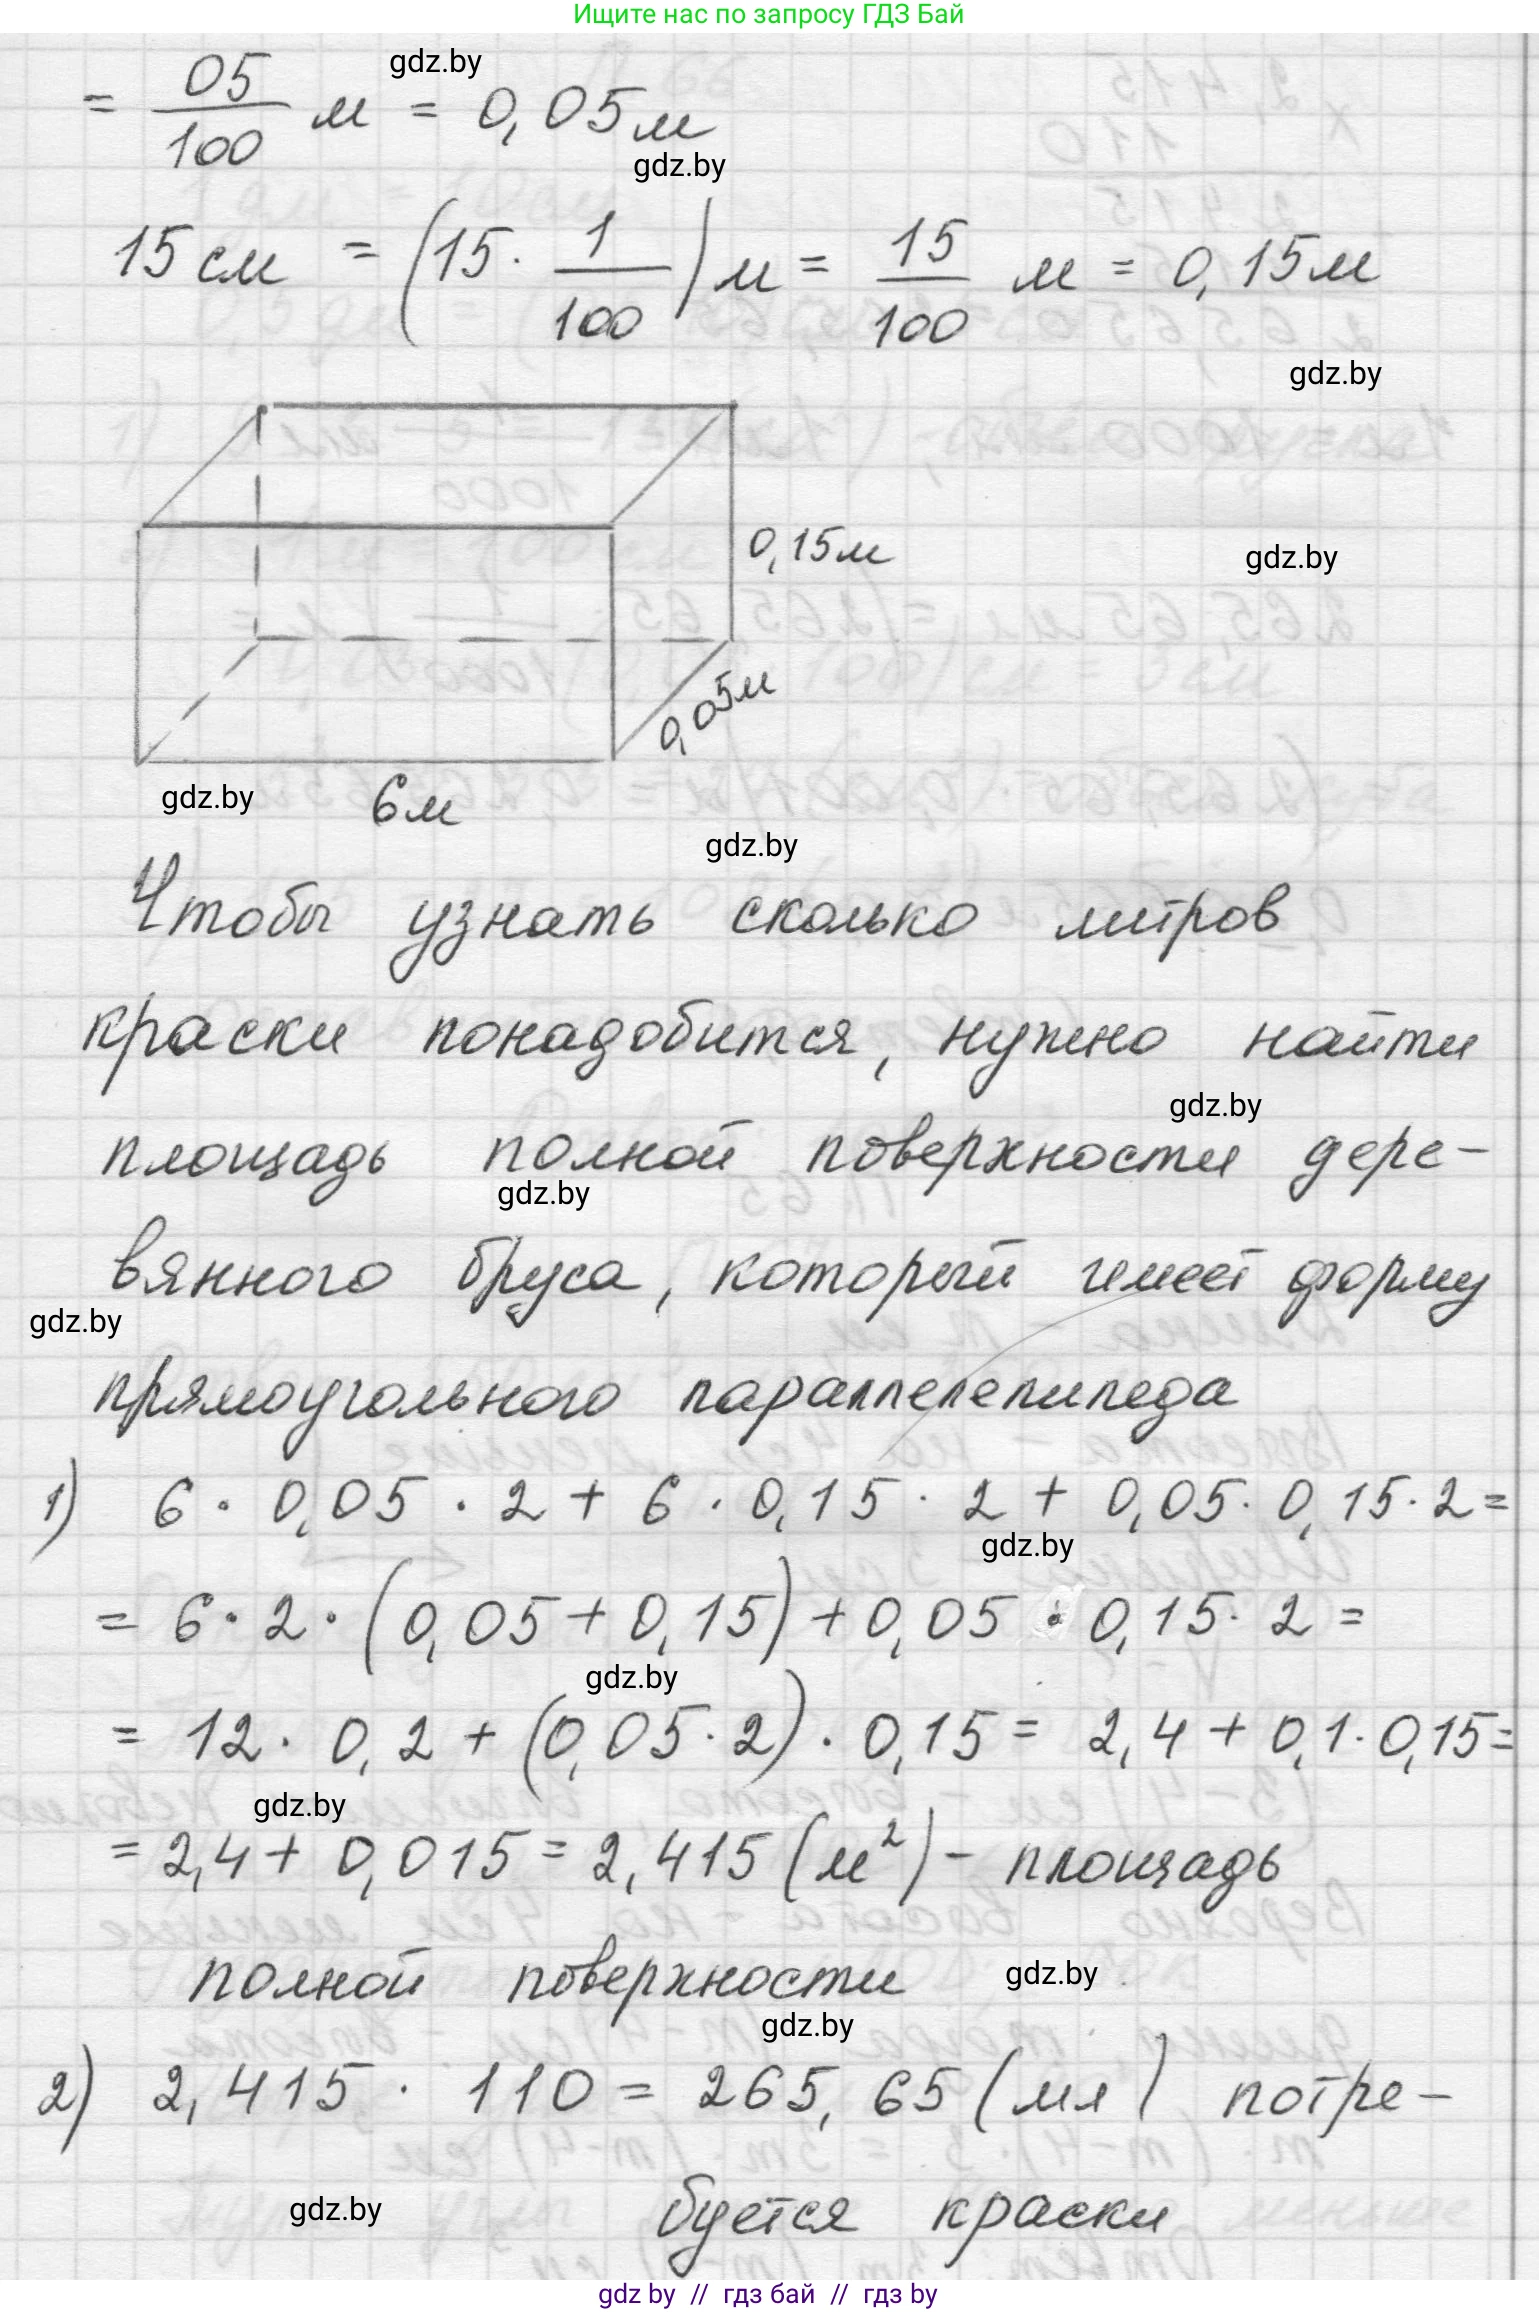 Ищите нас по запросу ГДЗ Бай
gdz.by
= 05/100 м = 0,05м
gdz.by
15 см = (15 · 1/100) м = 15/100 м = 0,15м
gdz.by
0,15м
gdz.by
0,05м
gdz.by
6м
gdz.by
Чтобы узнать сколько литров
краски понадобится, нужно найти
gdz.by
площадь полной поверхности дере-
gdz.by
вянного бруса, который имеет форму
gdz.by
прямоугольного параллелепипеда
1) 6 · 0,05 · 2 + 6 · 0,15 · 2 + 0,05 · 0,15 · 2 =
gdz.by
= 6 · 2 · (0,05 + 0,15) + 0,05 · 0,15 · 2 =
gdz.by
= 12 · 0,2 + (0,05 · 2) · 0,15 = 2,4 + 0,1 · 0,15 =
gdz.by
= 2,4 + 0,015 = 2,415 (м²) - площадь
полной поверхности
gdz.by
gdz.by
2) 2,415 · 110 = 265,65 (мл) потре-
буется краски
gdz.by
gdz by // гдз бай // гдз by